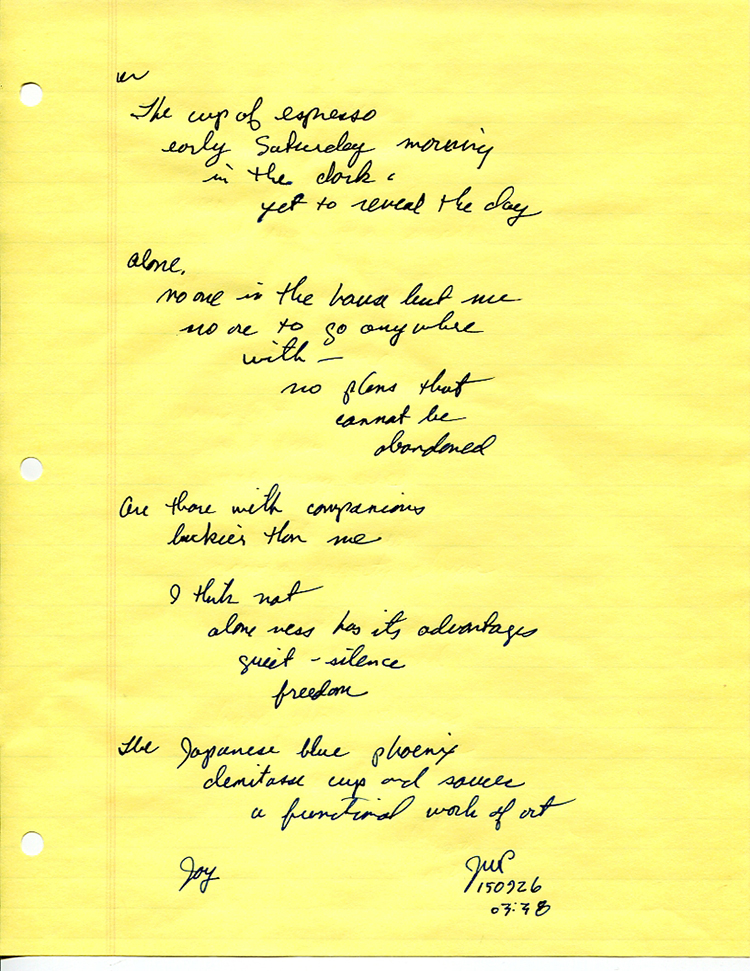 The cup of espresso
early Saturday morning
in the dark
yet to reveal the day
alone,
no one in the house but me
no one to go anywhere
with —
no plans that
cannot be
abandoned
Are those with companions
luckier than me
I think not
alone ness has its advantages
quiet - silence
freedom
The Japanese blue phoenix
demitasse cup and saucer
a functional work of art
Joy
150926
03:38